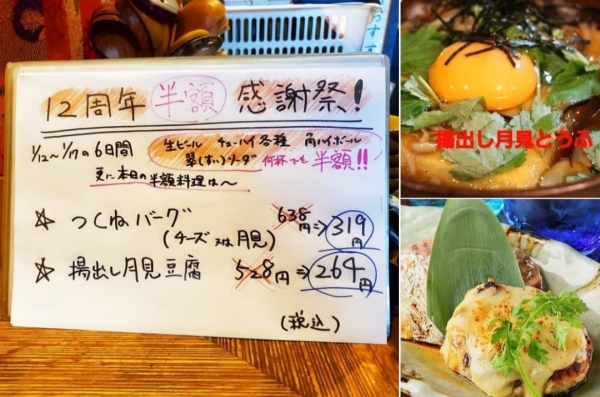 12周年 半額 感謝祭!
1/12〜1/17の6日間
生ビール チューハイ各種 角ハイボール
翠(すい)ソーダ 何杯でも 半額!!
更に本日の半額料理は〜
☆ つくねバーグ 638円⇒319円
(チーズ 又は 月見)
☆ 揚出し月見豆腐 528円⇒264円
(税込)
揚出し月見とうふ